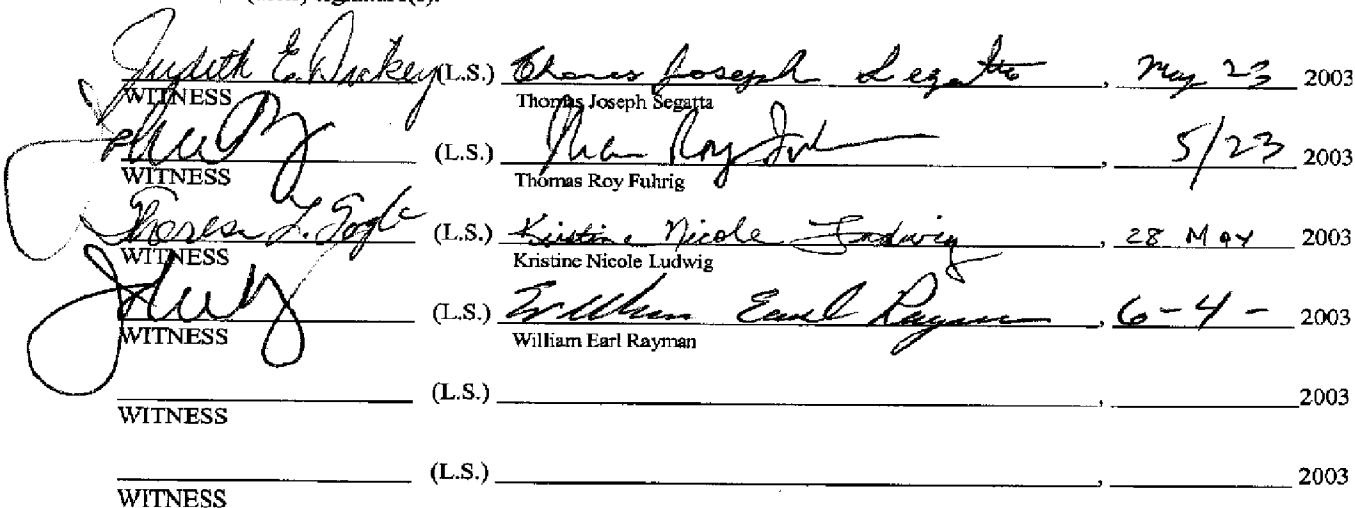 signature(s).
Judith E. Dickey (L.S.) Thomas Joseph Segatta , May 23 2003
WITNESS Thomas Joseph Segatta
(L.S.) , 5/23 2003
WITNESS Thomas Roy Fuhrig
Theresa L. (L.S.) Kristine Nicole Ludwig , 28 May 2003
WITNESS Kristine Nicole Ludwig
(L.S.) William Earl Rayman , 6-4- 2003
WITNESS William Earl Rayman
(L.S.) , 2003
WITNESS
(L.S.) , 2003
WITNESS